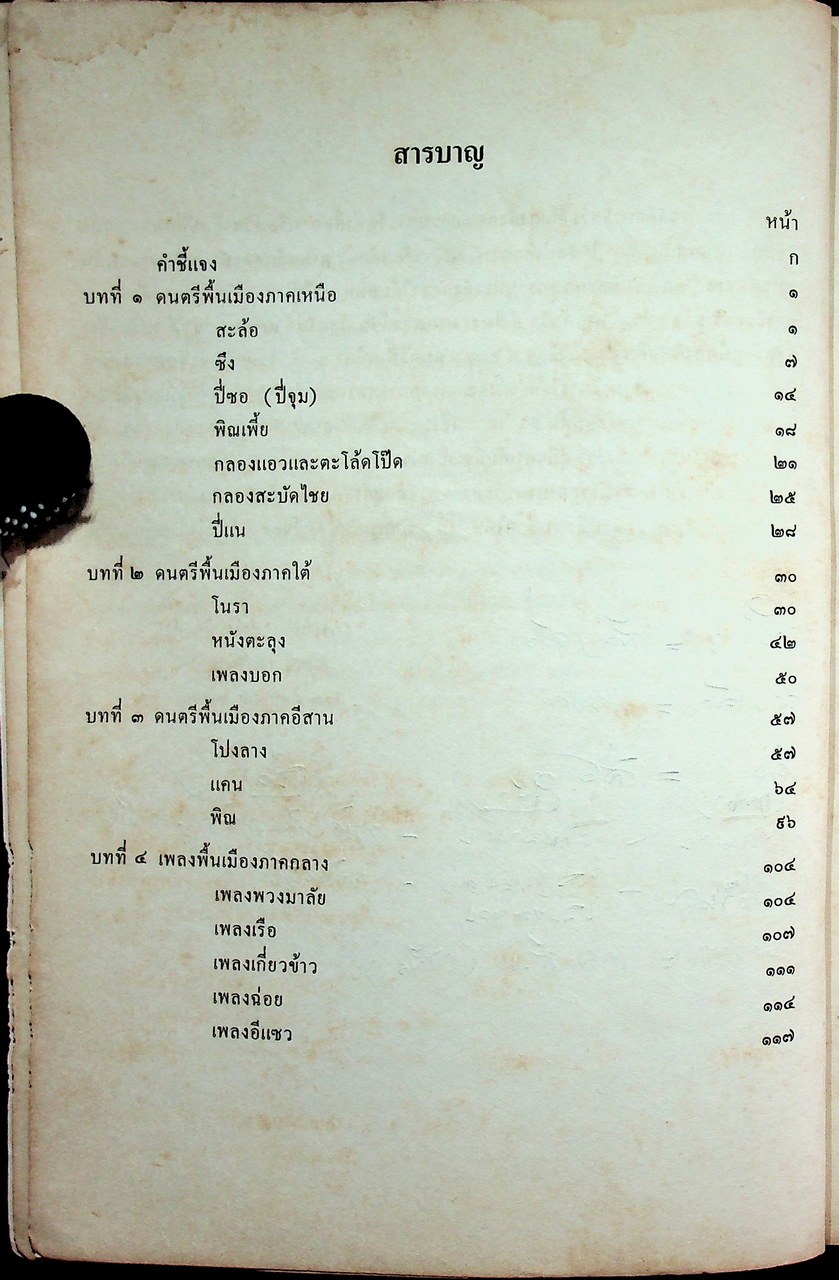 สารบาญ
หน้า
คำชี้แจง ก
บทที่ ๑ ดนตรีพื้นเมืองภาคเหนือ ๑
สะล้อ ๑
ซึง ๗
ปี่ซอ (ปี่จุม) ๑๔
พิณเพี้ย ๑๘
กลองแอวและตะโล้ดโป๊ด ๒๑
กลองสะบัดไชย ๒๕
ปี่แน ๒๘
บทที่ ๒ ดนตรีพื้นเมืองภาคใต้ ๓๐
โนรา ๓๐
หนังตะลุง ๔๒
เพลงบอก ๕๐
บทที่ ๓ ดนตรีพื้นเมืองภาคอีสาน ๕๗
โปงลาง ๕๗
แคน ๖๔
พิณ ๙๖
บทที่ ๔ เพลงพื้นเมืองภาคกลาง ๑๐๔
เพลงพวงมาลัย ๑๐๔
เพลงเรือ ๑๐๗
เพลงเกี่ยวข้าว ๑๑๑
เพลงฉ่อย ๑๑๔
เพลงอีแซว ๑๑๗